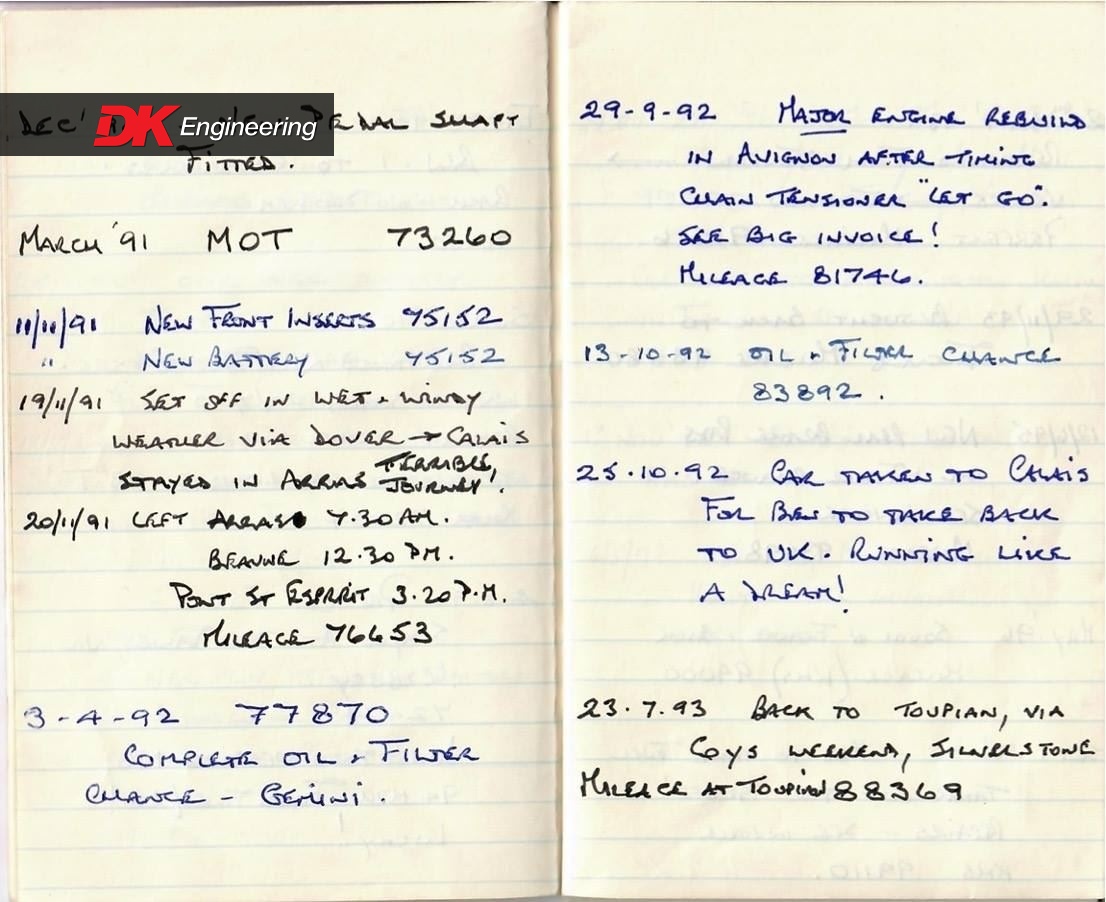 DK Engineering
DEC' PEDAL SHAFT
FITTED.
MARCH '91 MOT 73260
11/11/91 NEW FRONT INSERTS 75152
" NEW BATTERY 75152
19/11/91 SET OFF IN WET & WINDY
WEATHER VIA DOVER → CALAIS
STAYED IN ARRAS TERRIBLE JOURNEY!
20/11/91 LEFT ARRAS 7.30 AM.
BEAUNE 12.30 PM.
PONT ST ESPRIT 3.20 P.M.
MILEAGE 76653
3-4-92 77870
COMPLETE OIL & FILTER
CHANGE - GEMINI.
29-9-92 MAJOR ENGINE REBUILD
IN AVIGNON AFTER TIMING
CHAIN TENSIONER "LET GO".
SEE BIG INVOICE!
MILEAGE 81746.
13-10-92 OIL & FILTER CHANGE
83892.
25.10.92 CAR TAKEN TO CALAIS
FOR BEN TO TAKE BACK
TO UK. RUNNING LIKE
A DREAM!
23.7.93 BACK TO TOUPIAN, VIA
COYS WEEKEND, SILVERSTONE
MILEAGE AT TOUPIAN 88369